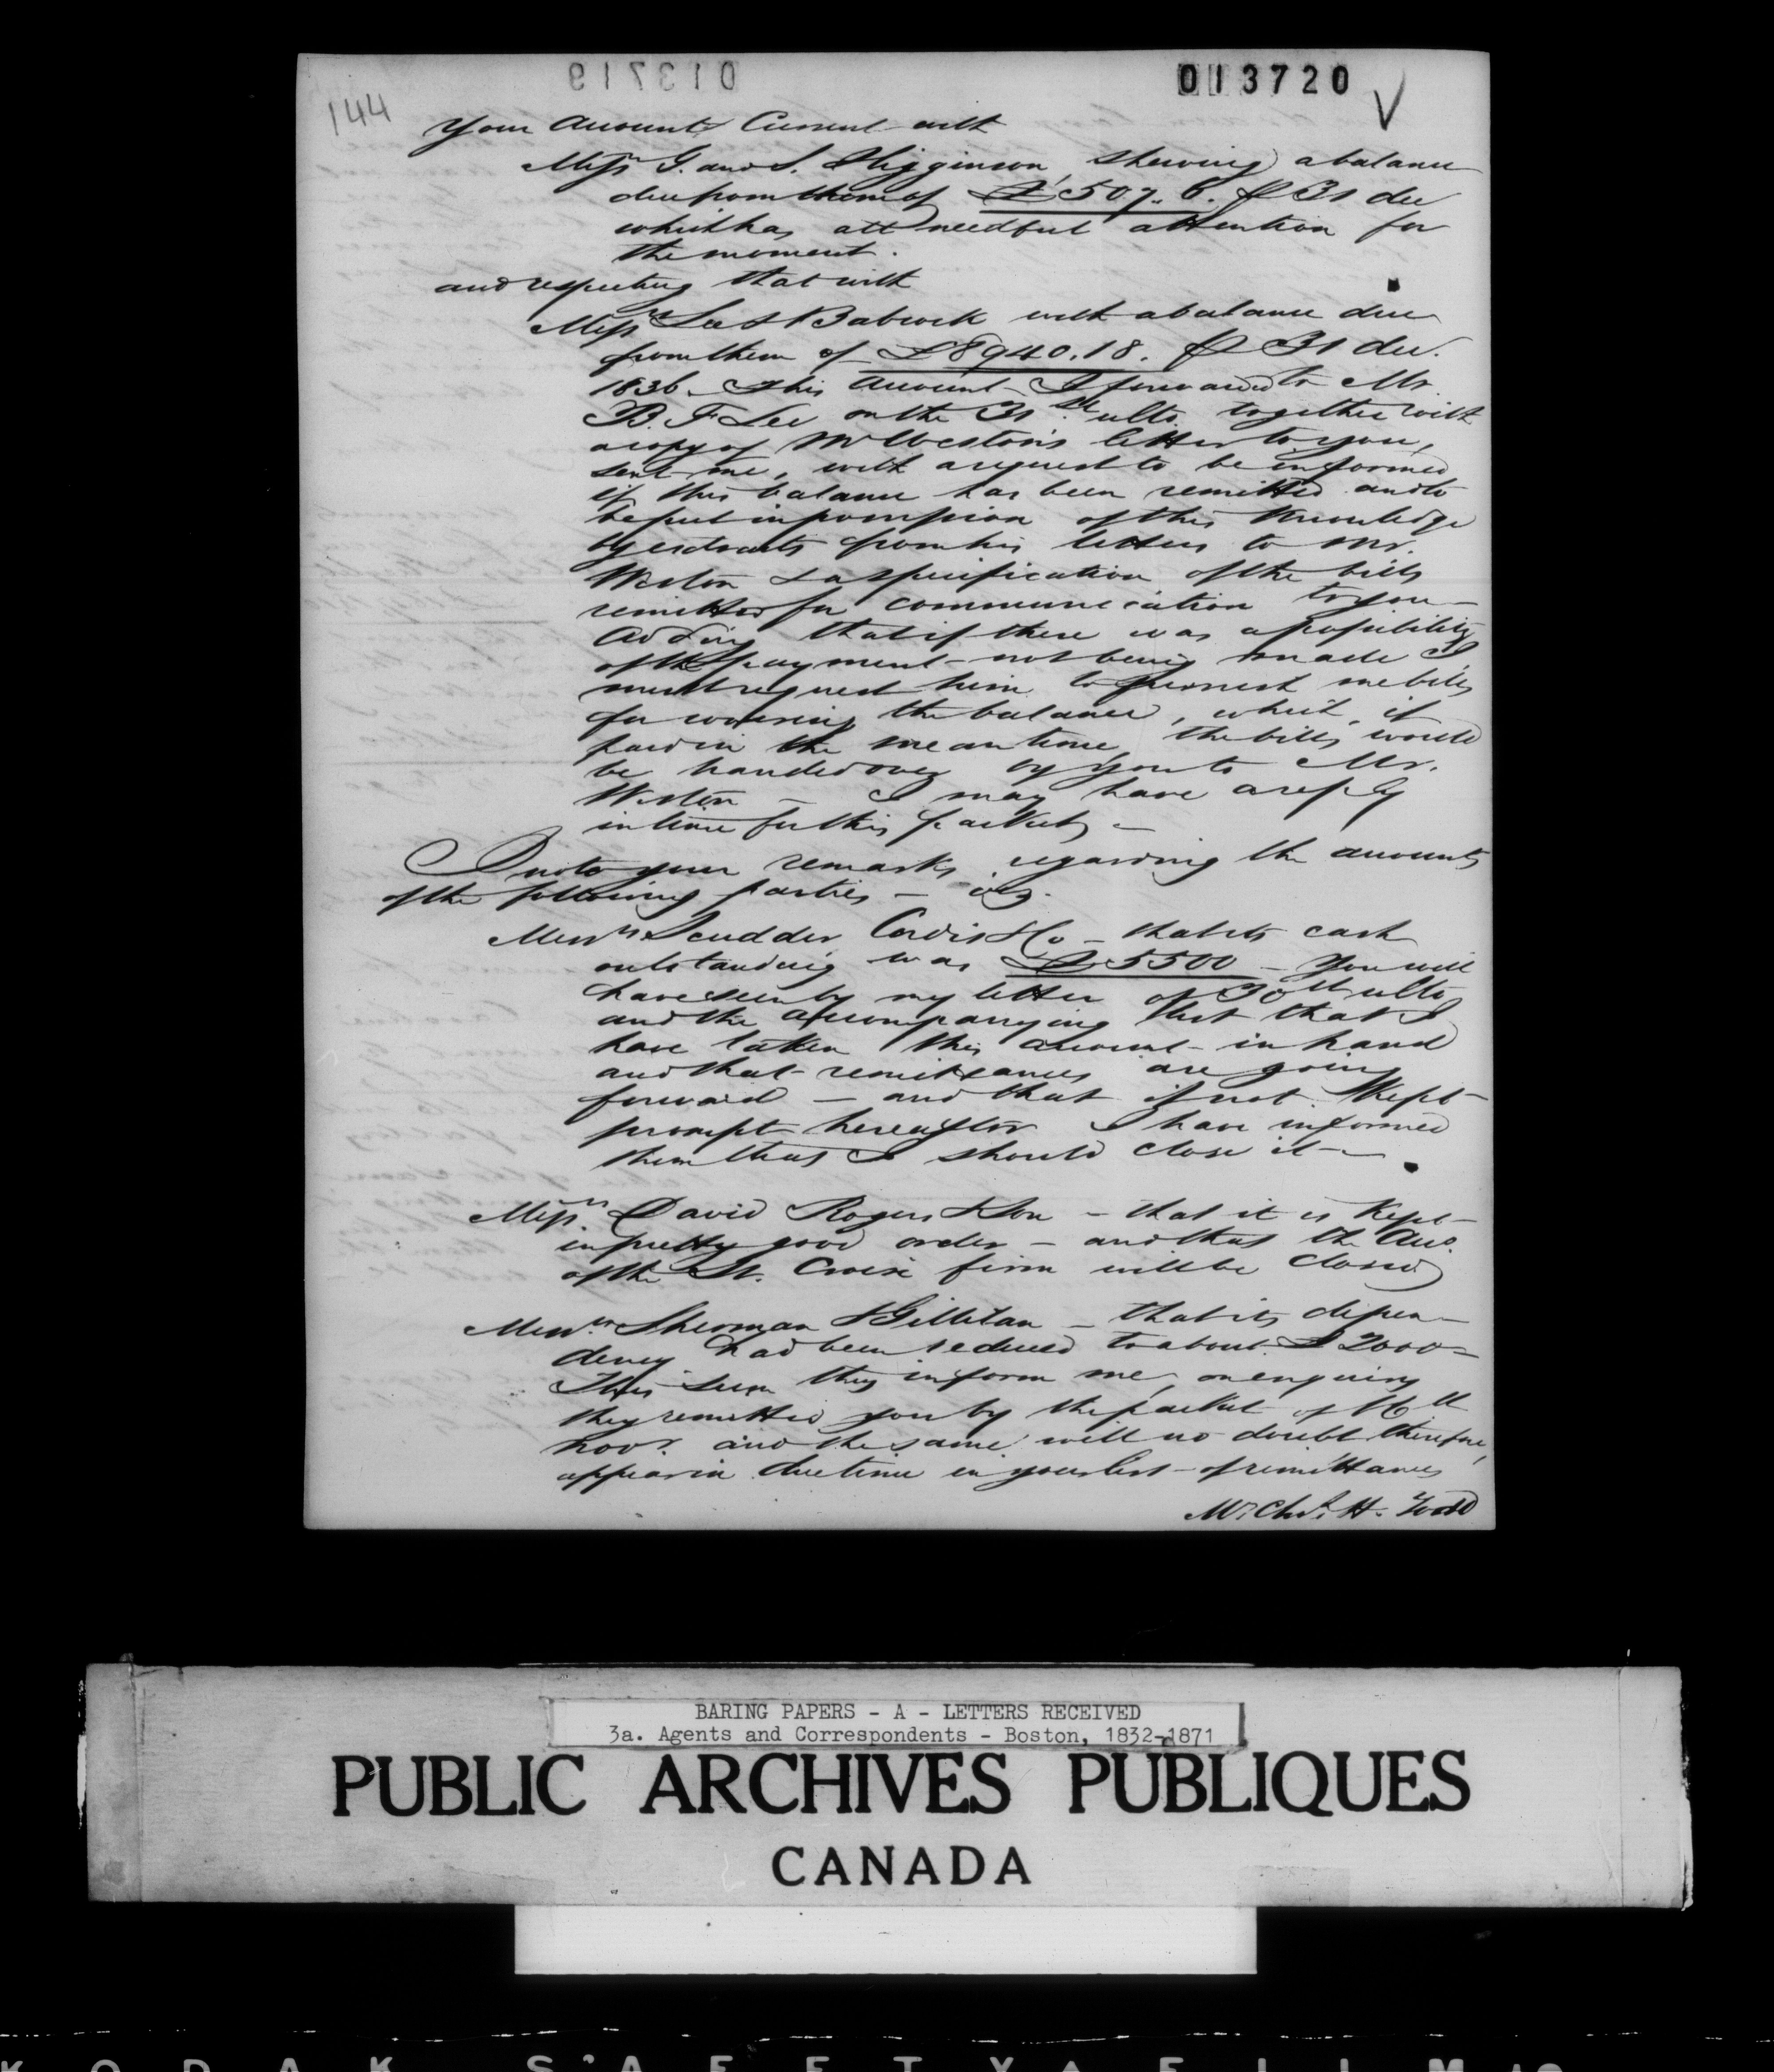 013719
013720
144
Your Account Current with
Messrs G. and S. Higginson, shewing a balance
due from them of £507.6. p 31 dec
which has all needful attention for
the moment.
and respecting that with
Messrs Lee & Babcock with a balance due
from them of £8940.18. p 31 dec.
1836. This Account I forwarded to Mr.
B. F Lee on the 31st ulto. together with
a copy of Mr Weston's letter to you,
sent me, with a request to be informed
if this balance has been remitted and to
be put in possession of this knowledge
by extracts from his letters to Mr.
Weston & a specification of the bills
remitted for communication to you—
Adding that if there was a possibility
of the payment not being made I
must request him to furnish me bills
for covering the balance, which, if
paid in the meantime, the bills would
be handed over by you to Mr.
Weston — I may have a reply
in time for this packet —
I note your remarks regarding the accounts
of the following parties — viz.
Messrs Scudder Cordis & Co — that its cash
outstanding was £5500 — You will
have seen by my letter of 30th ulto
and the accompanying list that I
have taken this account in hand
and that remittances are going
forward — and that if not kept
prompt hereafter I have informed
them that I should close it —
Messrs. David Rogers & Son — that it is kept
in pretty good order — and that the Acco.
of the St. Croix firm will be closed
Messrs. Sherman & Gillilan — that its depen-
dency had been reduced to about £2000 =
This sum they inform me, on enquiry
they remitted you by the packet of 16th
Novr. and the same will no doubt therefore,
appear in due time in your list of remittances
Mr. Chs. H. Todd
BARING PAPERS - A - LETTERS RECEIVED
3a. Agents and Correspondents - Boston, 1832-1871
PUBLIC ARCHIVES PUBLIQUES
CANADA
KODAK S'AFETY FILM